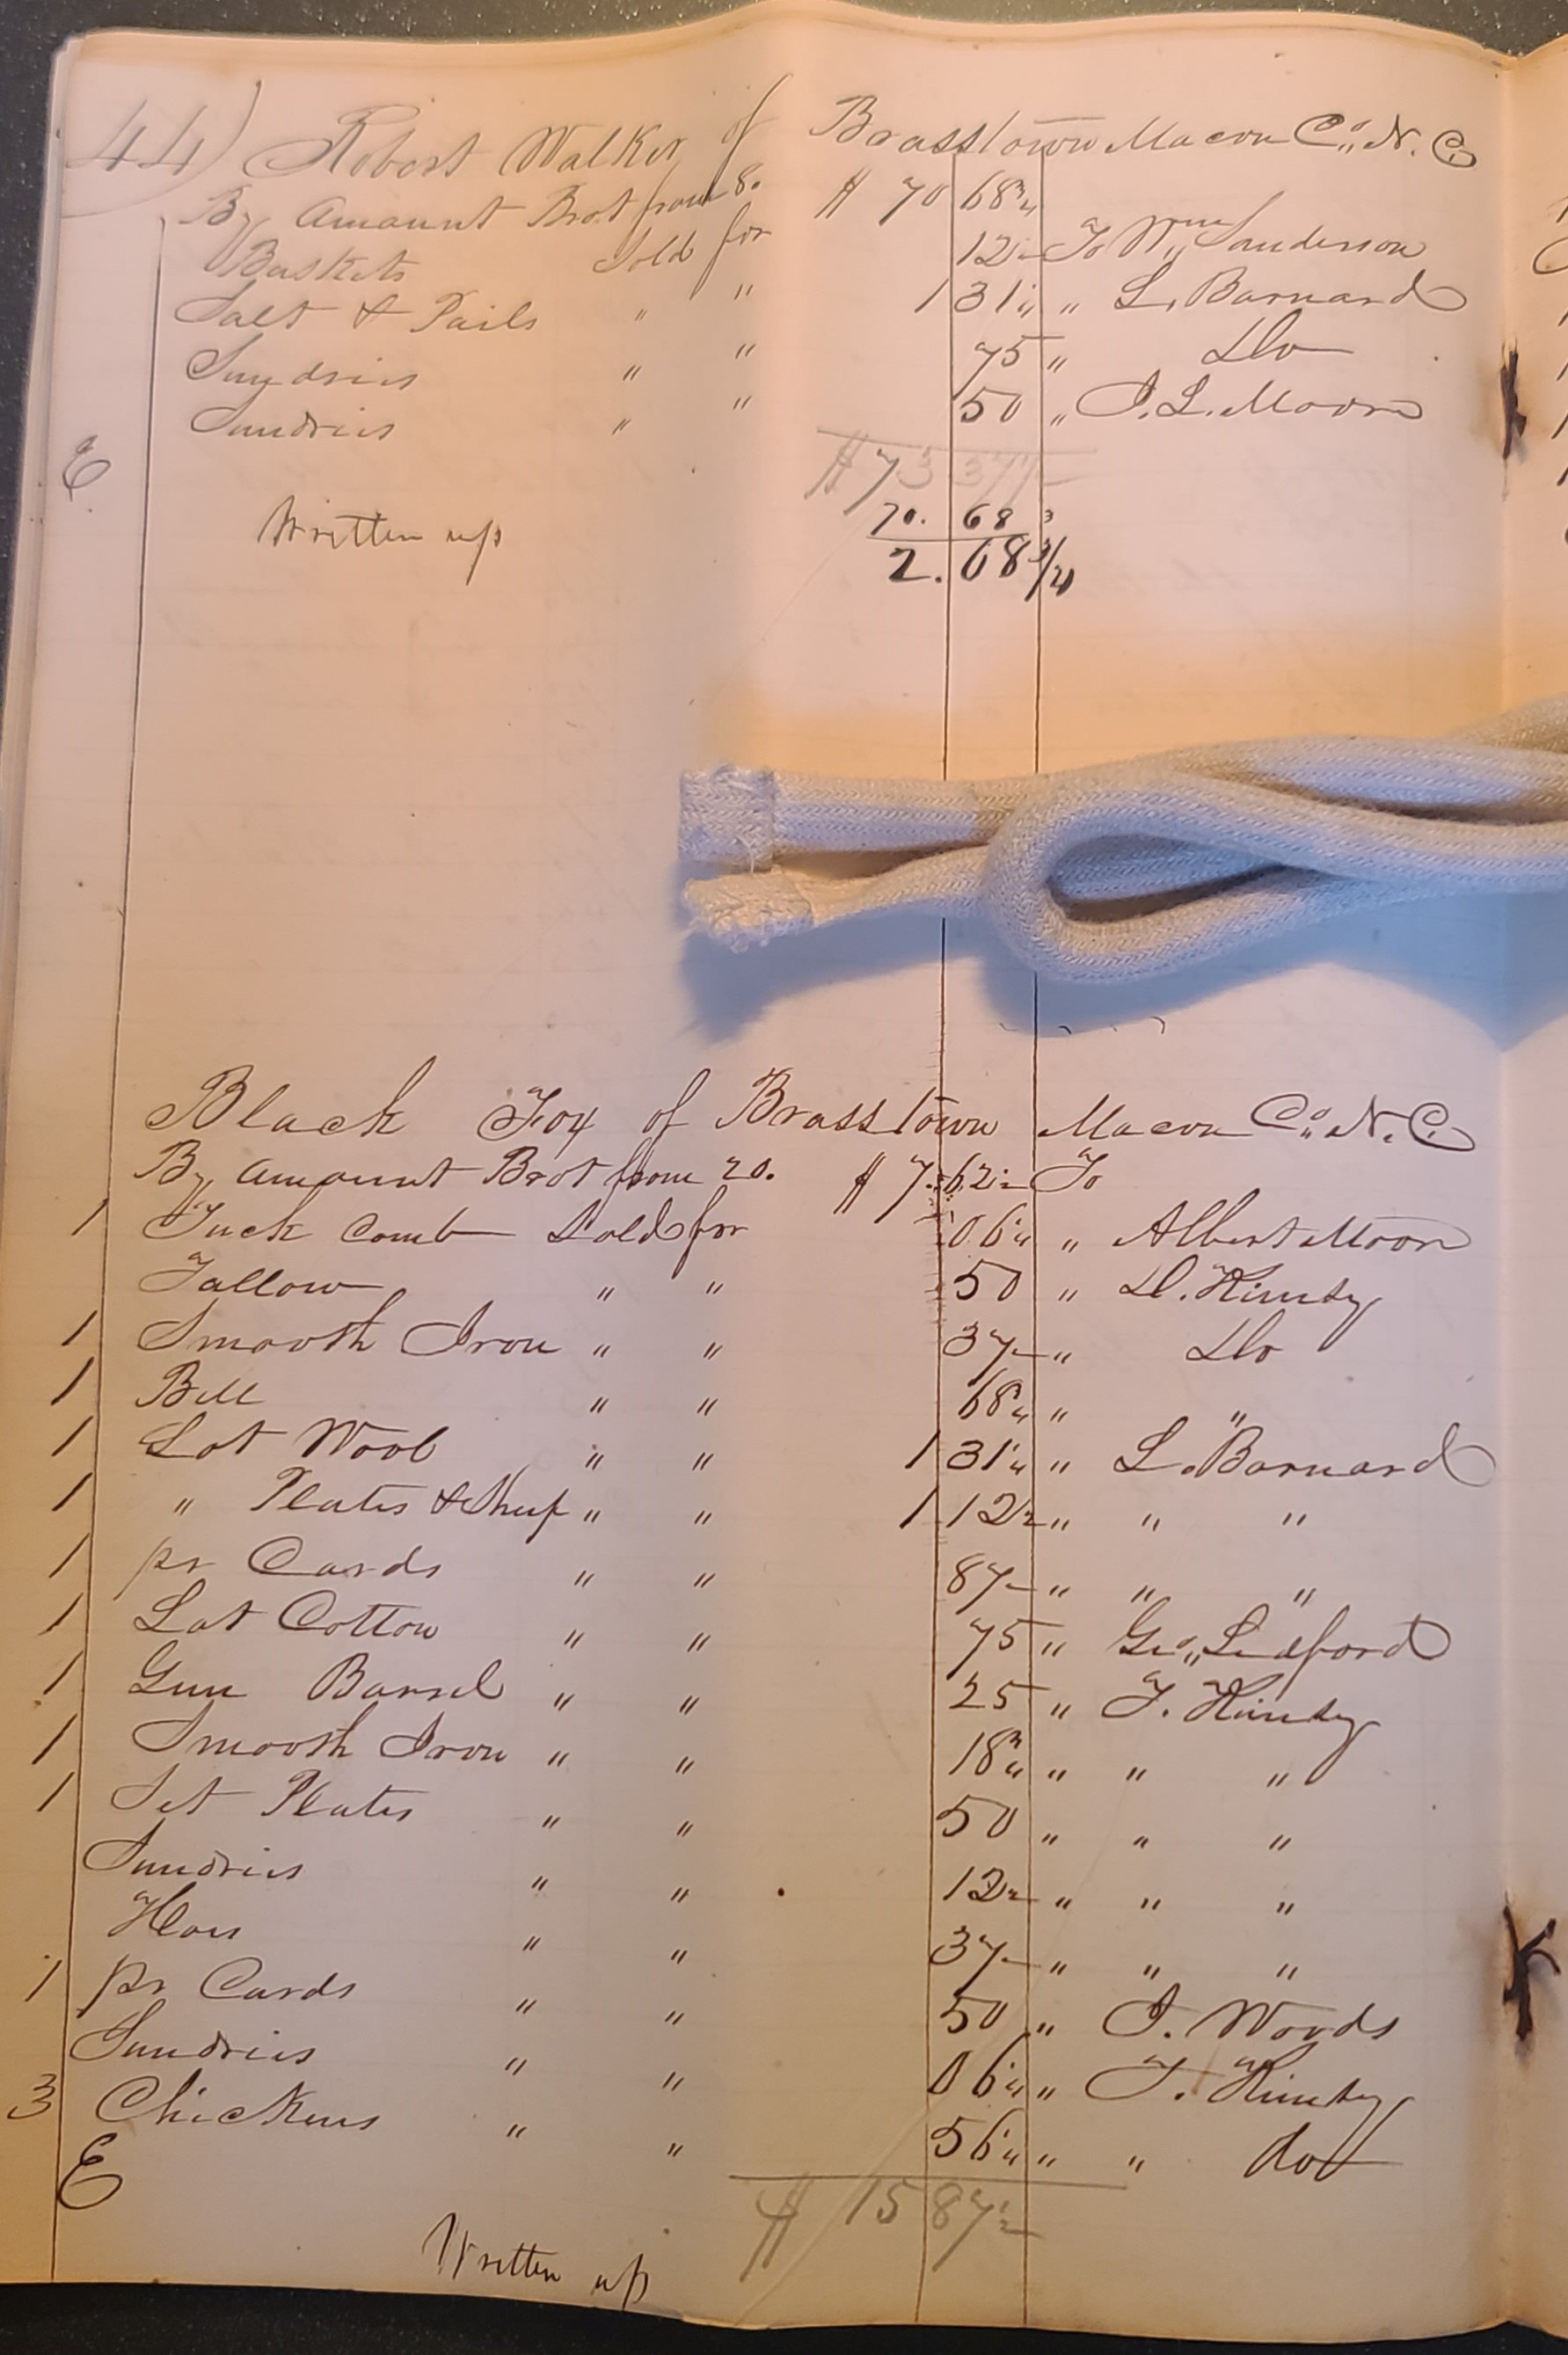 44) Robert Walker of Brasstown Macon Co. N. C.
By Amount Brot from 8. $ 70 68 3/4
Baskets Sold for 12 1/2 To Wm Sanderson
Salt & Pails " " 1 31 1/4 " L. Barnard
Sundries " " 75 " Do
Sundries " " 50 " J. L. Moore
E $ 73 37 1/2
70. 68 3
Written up 2. 68 3/4
Black Fox of Brasstown Macon Co. N. C.
By Amount Brot from 20. $ 7. 62 1/2 To
1 Tuck Comb Sold for 06 1/4 " Albert Moore
Tallow " " 50 " D. Kimsey
1 Smooth Iron " " 37 1/2 " Do
1 Bell " " 68 3/4 " "
1 Lot Wool " " 1 31 1/4 " L. Barnard
1 " Plates & " " 1 12 1/2 " " "
1 pr Cards " " 87 1/2 " " "
1 Lot Cotton " " 75 " Geo. Ledford
1 Gun Barrel " " 25 " T. Kimsey
1 Smooth Iron " " 18 3/4 " " "
1 Set Plates " " 50 " " "
Sundries " " 12 1/2 " " "
Hoes " " 37 1/2 " " "
1 pr Cards " " 50 " J. Woods
Sundries " " 06 1/4 " T. Kimsey
3 Chickens " " 56 1/4 " " do
E $ 15 87 1/2
Written up